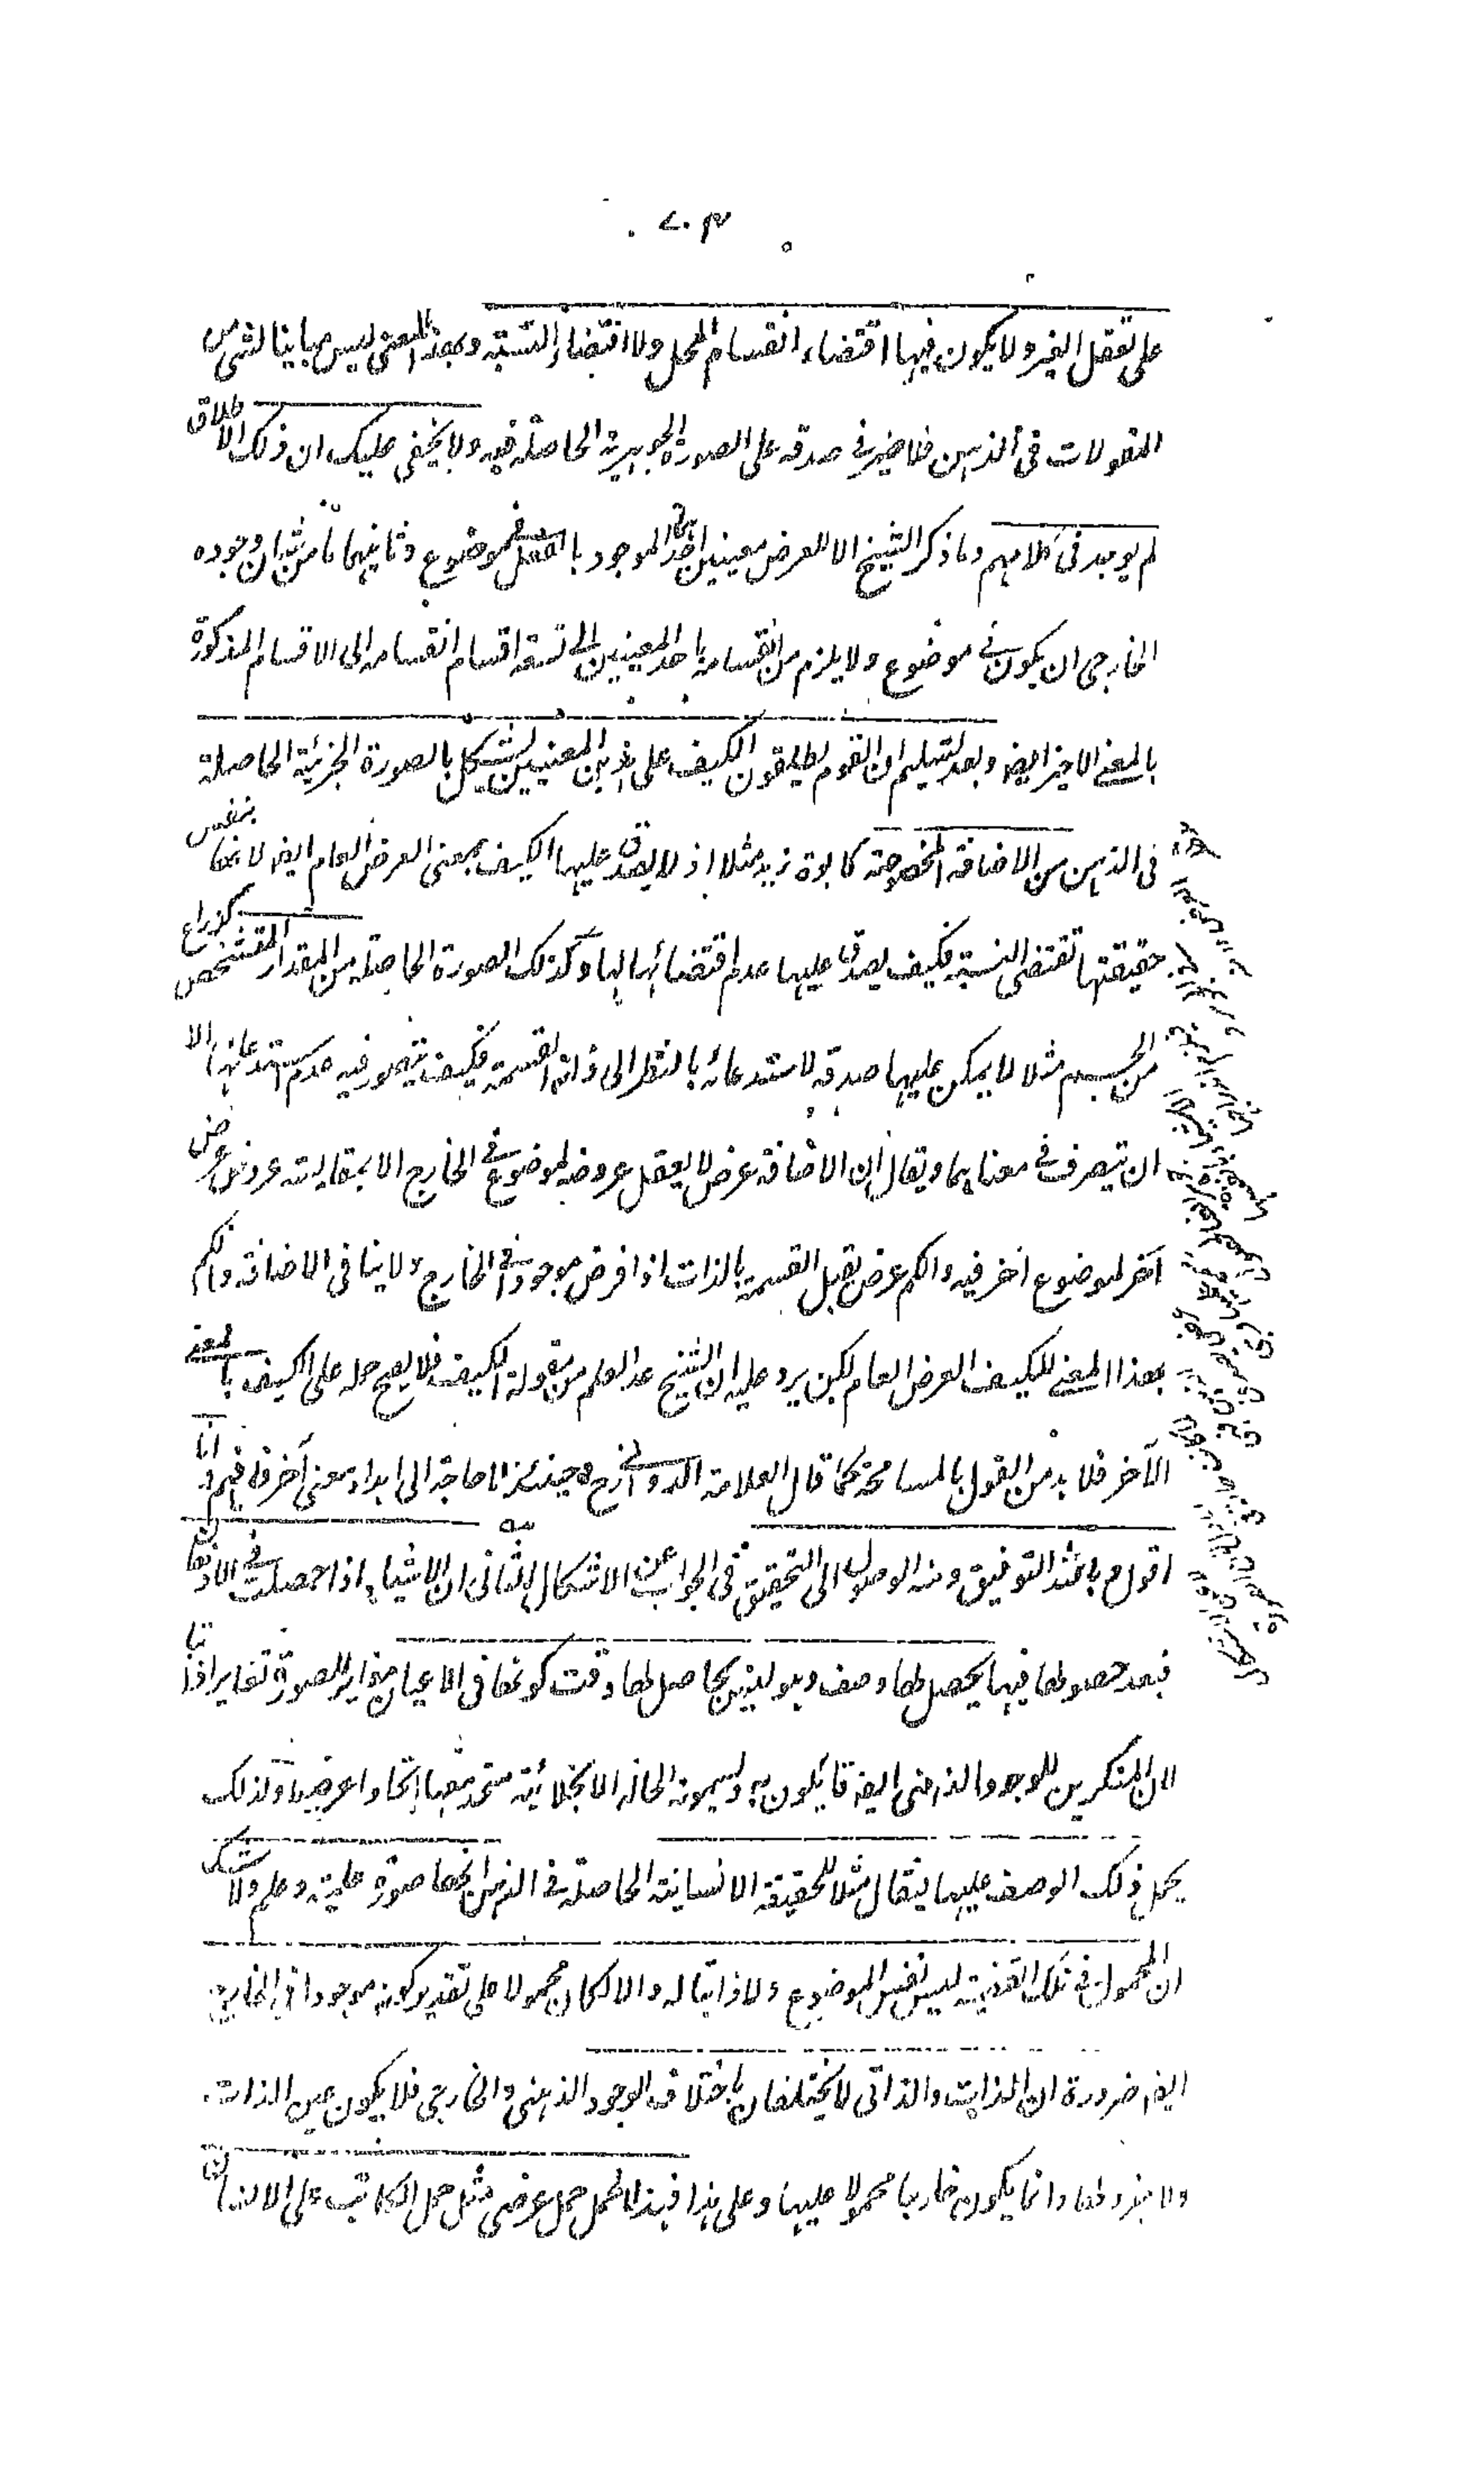 على تعقل الغير ولا يكون فيها اقتضاء انقسام المحل ولا اقتضاء النسبة وبهذا المعنى ليس مباينا لشئ من
المقولات فى الذهن فلا ضير فى صدقه على الصورة الجوهرية الحاصلة فيه ولا يخفى عليك ان ذلك الاطلاق
لم يوجد فى كلامهم وما ذكر الشيخ الا للعرض معنيين احدهما الموجود بالفعل فى موضوع وثانيهما ما من شانه ان وجوده
الخارجى ان يكون فى موضوع ولا يلزم من انقسامه باحد المعنيين الى تسعة اقسام انقسامه الى الاقسام المذكورة
بالمعنى الاخير ايضا وبعد تسليم ان القوم يطلقون الكيف على هذين المعنيين يشكل بالصورة الجزئية الحاصلة
فى الذهن من الاضافة المخصوصة كابوة زيد مثلا اذ لا يصدق عليها الكيف بمعنى العرض العام ايضا لانها بنفس
حقيقتها تقتضى النسبة فكيف يصدق عليها عدم اقتضائها لها وكذلك الصورة الحاصلة من المقدار المتشخص كذراع
من الجسم مثلا لا يمكن عليها صدقه لاستدعائه بالنظر الى ذاته القسمة فكيف يتصور فيه عدم استدعائها الا
ان يتصرف فى معناهما ويقال ان الاضافة عرض لا يعقل عروضه لموضوع فى الخارج الا بمقايسة عروض عرض
آخر لموضوع آخر فيه والكم عرض يقبل القسمة بالذات اذا فرض موجودا فى الخارج ولا ينافى الاضافة والكم
بهذا المعنى للكيف العرض العام لكن يرد عليه ان الشيخ عد العلم من مقولة الكيف فلا يصح حمله على الكيف بالمعنى
الآخر فلا بد من القول بالمسامحة كما قال العلامة الدوانى رح وحينئذ لا حاجة الى ابداء معنى آخر فافهم وانا
اقول وبالله التوفيق ومنه الوصول الى التحقيق فى الجواب عن الاشكال الثانى ان الاشياء اذا حصلت فى الاذهان
فبعد حصولها فيها يحصل لها وصف وهو ليس بحاصل لها وقت كونها فى الاعيان مغاير للصورة تغايرا ذاتيا
لان المنكرين للوجود الذهنى ايضا قائلون به ويسمونه الحالة الانجلائية متحد معها اتحادا عرضيا ولذلك
يحمل ذلك الوصف عليها فيقال مثلا للحقيقة الانسانية الحاصلة فى الذهن انها صورة علمية وعلم ولا شك
ان المحمول فى تلك القضية ليس نفس الموضوع ولا ذاتيا له والا لكان محمولا على تقدير كونه موجودا فى الخارج
ايضا ضرورة ان الذات والذاتى لا يختلفان باختلاف الوجود الذهنى والخارجى فلا يكون عين الذات
ولا جزء لها وانما يكون خارجا محمولا عليها وعلى هذا فهذا الحمل حمل عرضى مثل حمل الكاتب على الانسان